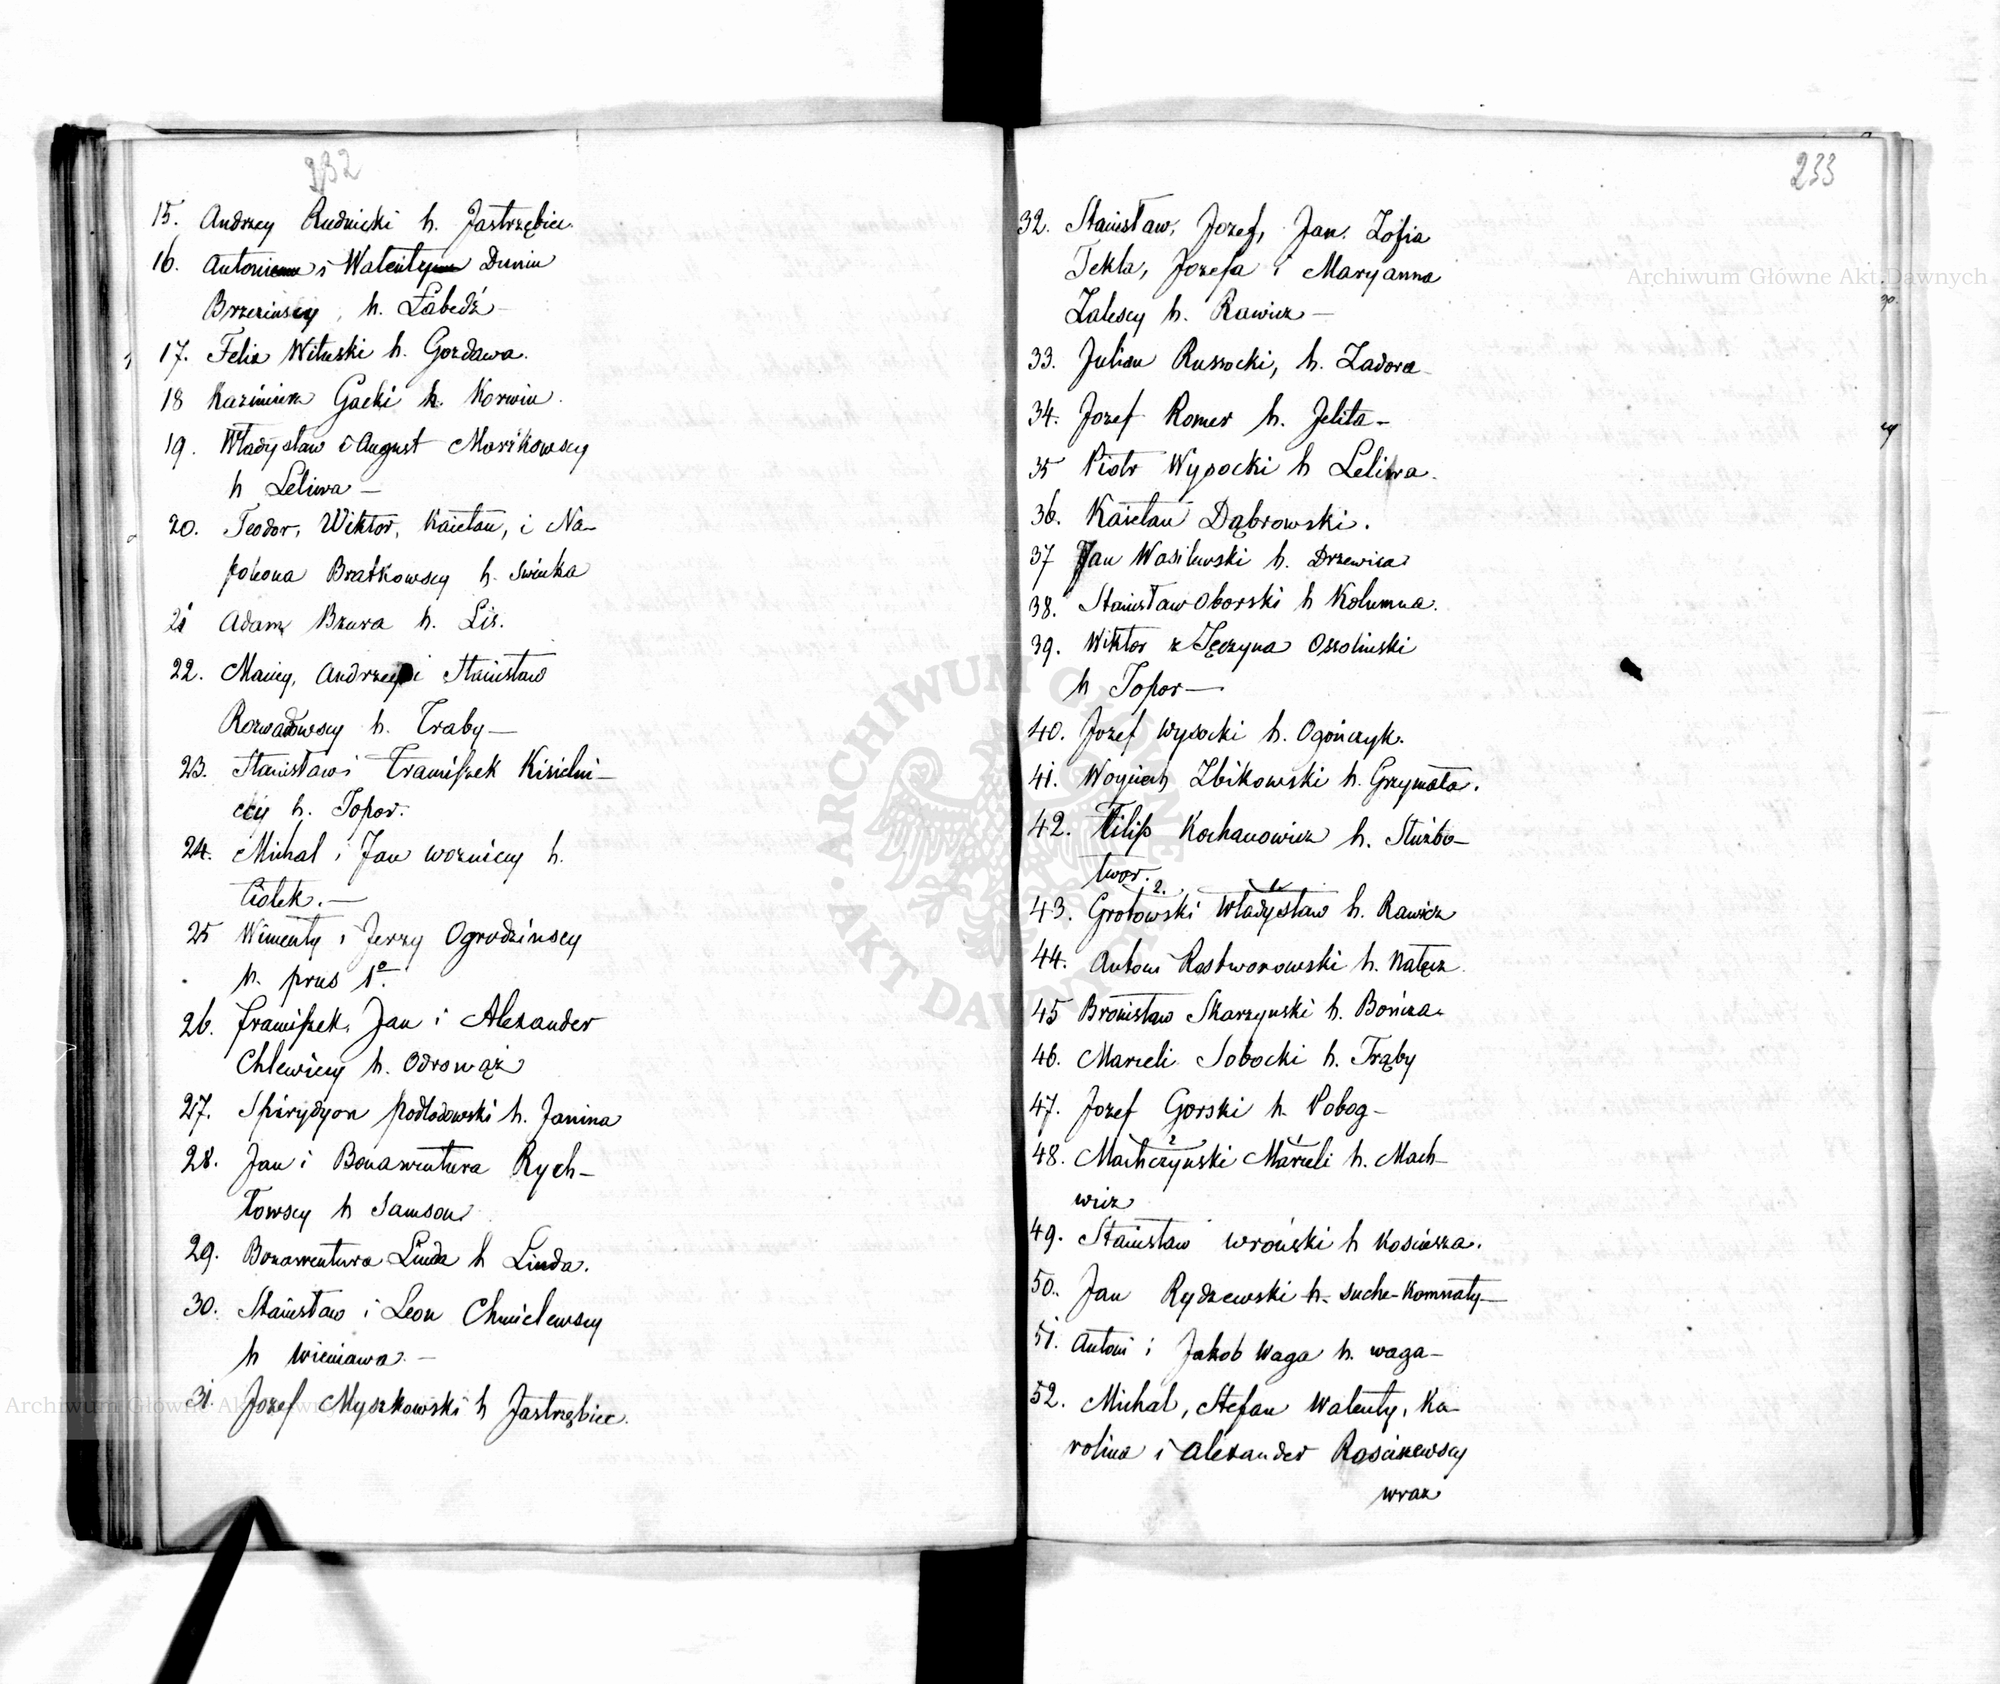 232
15. Andrzey Rudnicki h. Jastrzębiec.
16. Antoni i Walenty Dunin
Brzezinscy, h. Łabędź –
17. Felix Wituski h. Gozdawa.
18 Kazimierz Gacki h. Korwin.
19. Władysław i August Morzkowscy
h Leliwa –
20. Teodor, Wiktor, Kaietan, i Na-
poleona Bratkowscy h. Swinka
21 Adam Bzura h. Lis.
22. Maciey, Andrzey i Stanisław
Rozwadowscy h. Trąby –
23. Stanisław i Franciszek Kisielni-
ccy h. Topor.
24. Michał i Jan Woznicey h.
Ciołek. –
25 Wincenty i Jerzy Ogrodzinscy
h. prus 1º.
26. Franciszek, Jan i Alexander
Chlewiccy h. Odrowąż
27. Spirydyon Podłodowski h. Janina
28. Jan i Bonawentura Rych-
łowscy h Samson
29. Bonawentura Linda h Linda.
30. Stanisław i Leon Chmielewscy
h Wieniawa. –
31. Jozef Myszkowski h Jastrzębiec.
233
32. Stanisław, Jozef, Jan. Zofia
Tekla, Jozefa i Maryanna
Zalescy h. Rawicz –
33. Julian Russocki, h. Zadora –
34. Jozef Romer h. Jelita –
35 Piotr Wysocki h Leliwa.
36. Kaietan Dąbrowski.
37 Jan Wasilewski h. Drzewica
38. Stanisław Oborski h Kolumna.
39. Wiktor z Tęczyna Ossolinski
h Topor –
40. Jozef Wysocki h. Ogończyk.
41. Woyciech Zbikowski h. Grzymała.
42. Filip Kochanowicz h. Służbo-
twor.
43. Grotowski 2. Władysław 1. h. Rawicz
44. Antoni Rostworowski h. Nałęcz
45 Bronisław Skarzynski h. Bończa
46. Marceli Sobocki h. Trąby
47. Jozef Gorski h. Pobog –
48. Machczyński 2 Marceli 1 h. Mach-
wicz
49. Stanisław Wroński h Kosciesza.
50. Jan Rydzewski h. Suche-Komnaty –
51. Antoni i Jakob Waga h. waga –
52. Michał, Stefan Walenty, Ka-
rolina i Alexander Rościszewscy
wraz
Archiwum Główne Akt Dawnych
ARCHIWUM GŁÓWNE AKT DAWNYCH